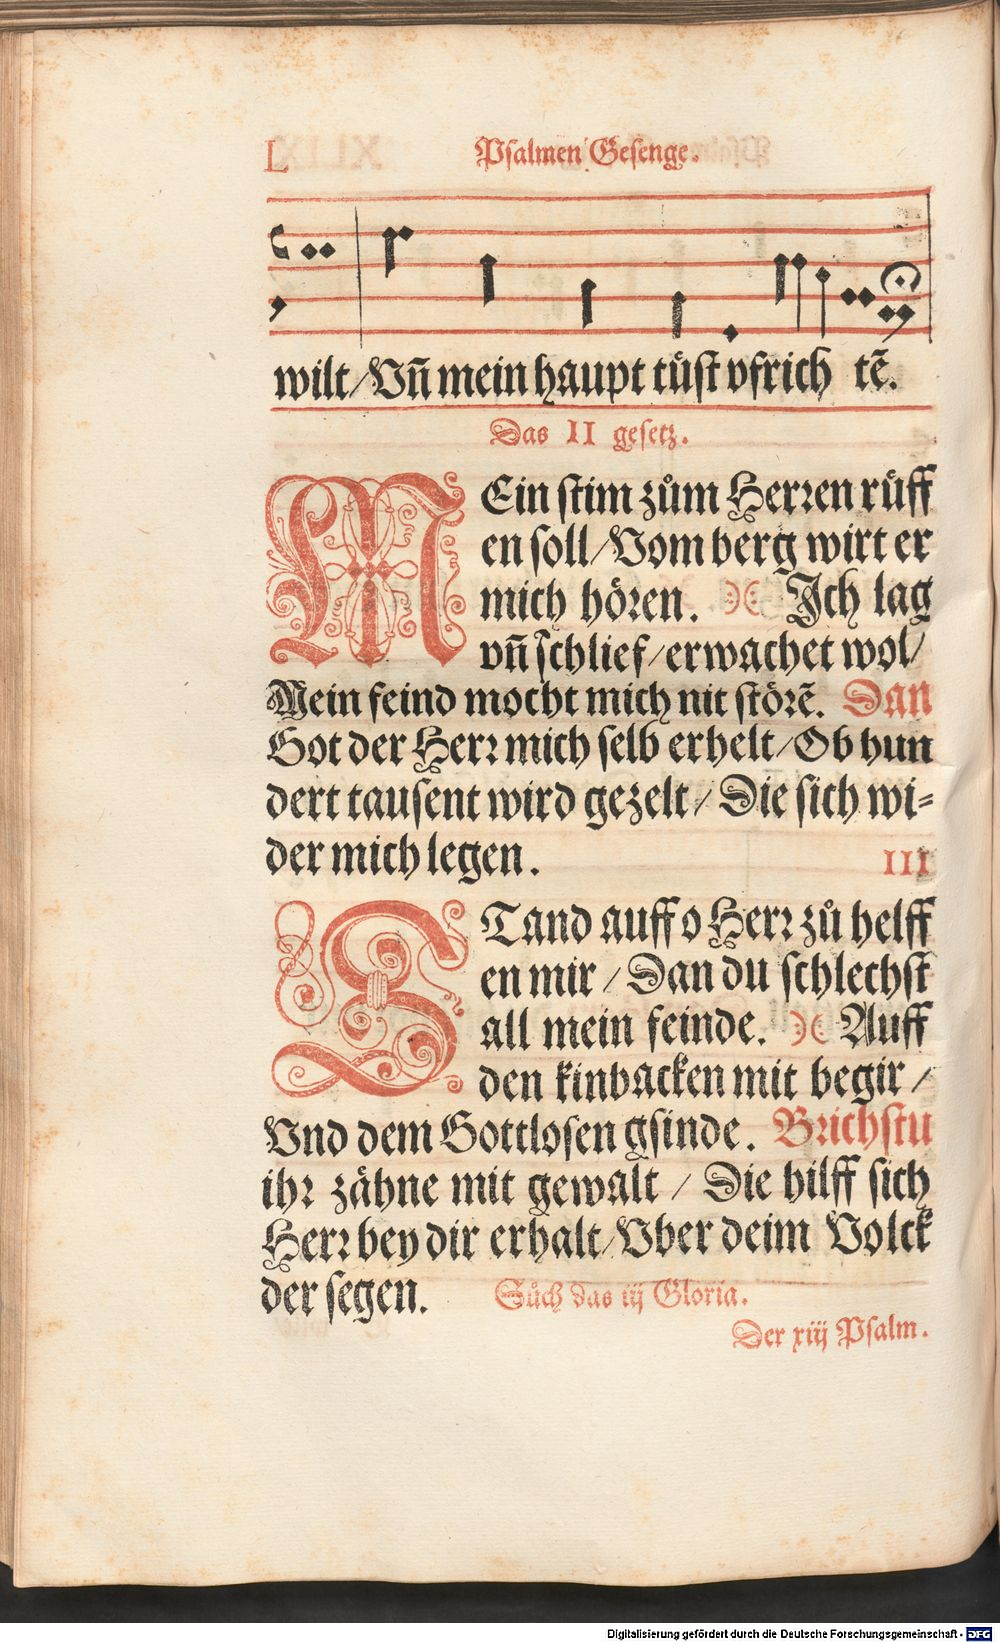 L Psalmen Gesenge.
wilt/Vñ mein haupt tůst vfrich tẽ.
Das II gesetz.
MEin stim zům Herren rüff
en soll/Vom berg wirt er
mich hören. Ich lag
vñ schlief/erwachet wol/
Mein feind mocht mich nit störẽ. Dan
Got der Herr mich selb erhelt/Ob hun
dert tausent wird gezelt/Die sich wi-
der mich legen. III
STand auff o Herr zů helff
en mir/Dan du schlechst
all mein feinde. Auff
den kinbacken mit begir/
Vnd dem Gottlosen gsinde. Brichstu
ihr zähne mit gewalt/Die hilff sich
Herr bey dir erhalt/Vber deim Volck
der segen. Sůch das iij Gloria.
Der xiij Psalm.
Digitalisierung gefördert durch die Deutsche Forschungsgemeinschaft - DFG